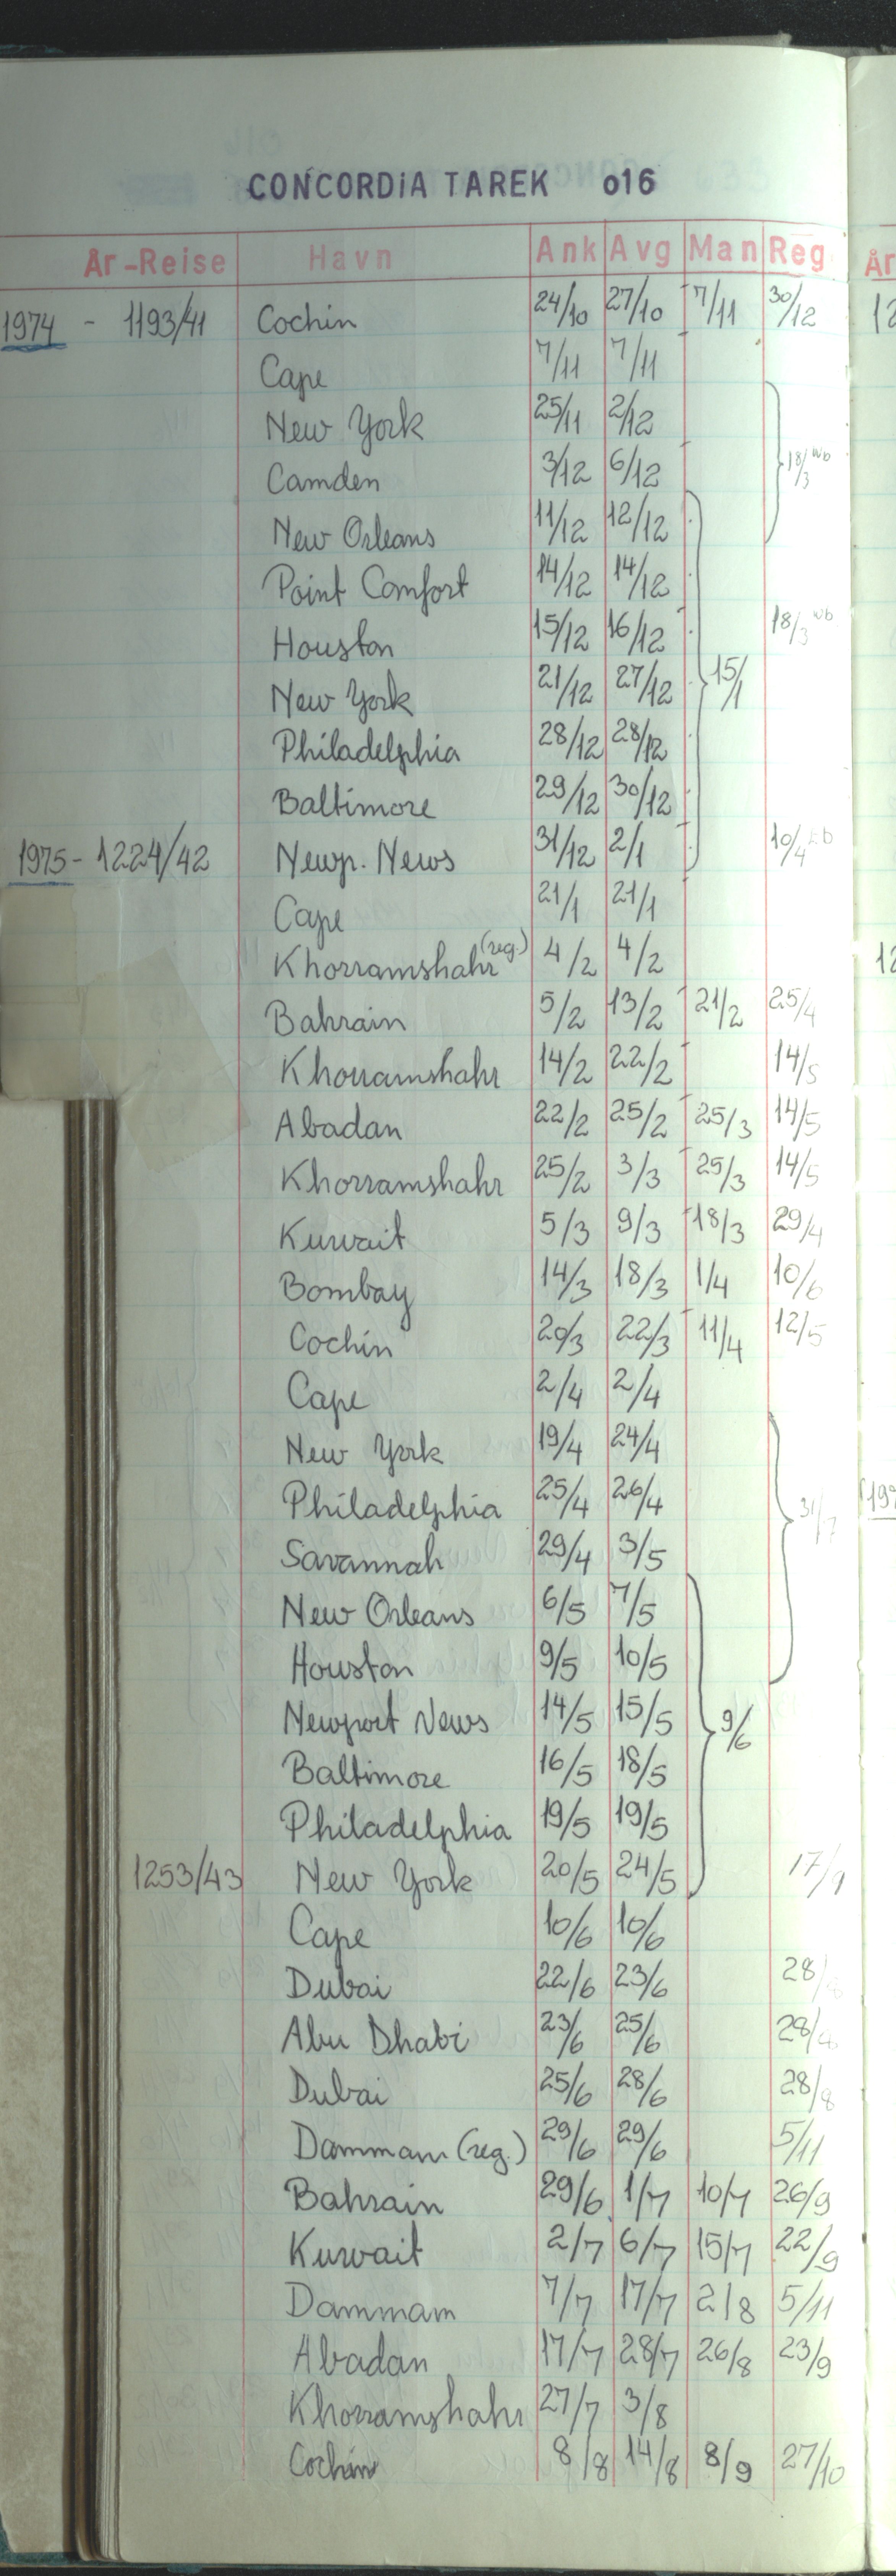 CONCORDIA TAREK 016
År-Reise Havn Ank Avg Man Reg År
1974 - 1193/41 Cochin 24/10 27/10 7/11 30/12
Cape 7/11 7/11
New York 25/11 2/12
Camden 3/12 6/12 18/3 wb
New Orleans 11/12 12/12
Point Comfort 14/12 14/12
Houston 15/12 16/12 18/3 wb
New York 21/12 27/12 15/1
Philadelphia 28/12 28/12
Baltimore 29/12 30/12
1975 - 1224/42 Newp. News 31/12 2/1 10/4
Cape 21/1 21/1
Khorramshahr (reg.) 4/2 4/2
Bahrain 5/2 13/2 21/2 25/4
Khorramshahr 14/2 22/2 14/5
Abadan 22/2 25/2 25/3 14/5
Khorramshahr 25/2 3/3 25/3 14/5
Kuwait 5/3 9/3 18/3 29/4
Bombay 14/3 18/3 1/4 10/6
Cochin 20/3 22/3 11/4 12/5
Cape 2/4 2/4
New York 19/4 24/4
Philadelphia 25/4 26/4 31/7
Savannah 29/4 3/5
New Orleans 6/5 7/5
Houston 9/5 10/5
Newport News 14/5 15/5 9/6
Baltimore 16/5 18/5
Philadelphia 19/5 19/5
1253/43 New York 20/5 24/5 17/9
Cape 10/6 10/6
Dubai 22/6 23/6
Abu Dhabi 23/6 25/6
Dubai 25/6 28/6 28/8
Dammam (reg.) 29/6 29/6 5/11
Bahrain 29/6 1/7 10/7 26/9
Kuwait 2/7 6/7 15/7 22/9
Dammam 7/7 17/7 2/8 5/11
Abadan 17/7 28/7 26/8 23/9
Khorramshahr 27/7 3/8
Cochin 8/8 14/8 8/9 27/10